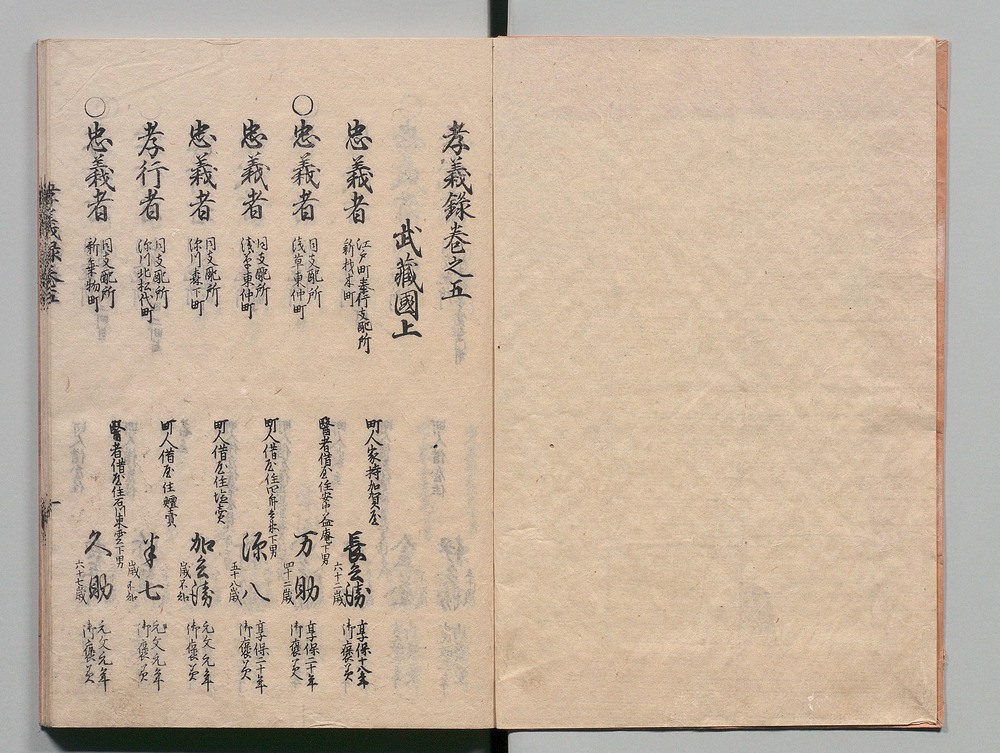 孝義錄卷之五
武藏國上
忠義者
江戸町奉行支配所
新材木町
町人家持加賀屋
六十二歳
享保十八年
御褒美
○忠義者
同支配所
浅草東仲町
醫者借屋住
下男
万助
四十二歳
享保二十年
御褒美
忠義者
同支配所
浅草東仲町
町人借屋住
下男
源八
五十八歳
享保二十年
御褒美
忠義者
同支配所
深川森下町
町人借屋住塩賣
歳不知
元文元年
御褒美
孝行者
同支配所
深川北松代町
町人借屋住
半七
歳不知
元文元年
御褒美
○忠義者
同支配所
新乗物町
醫者借屋住石川東雲下男
久助
六十七歳
元文元年
御褒美
孝義録卷五
一